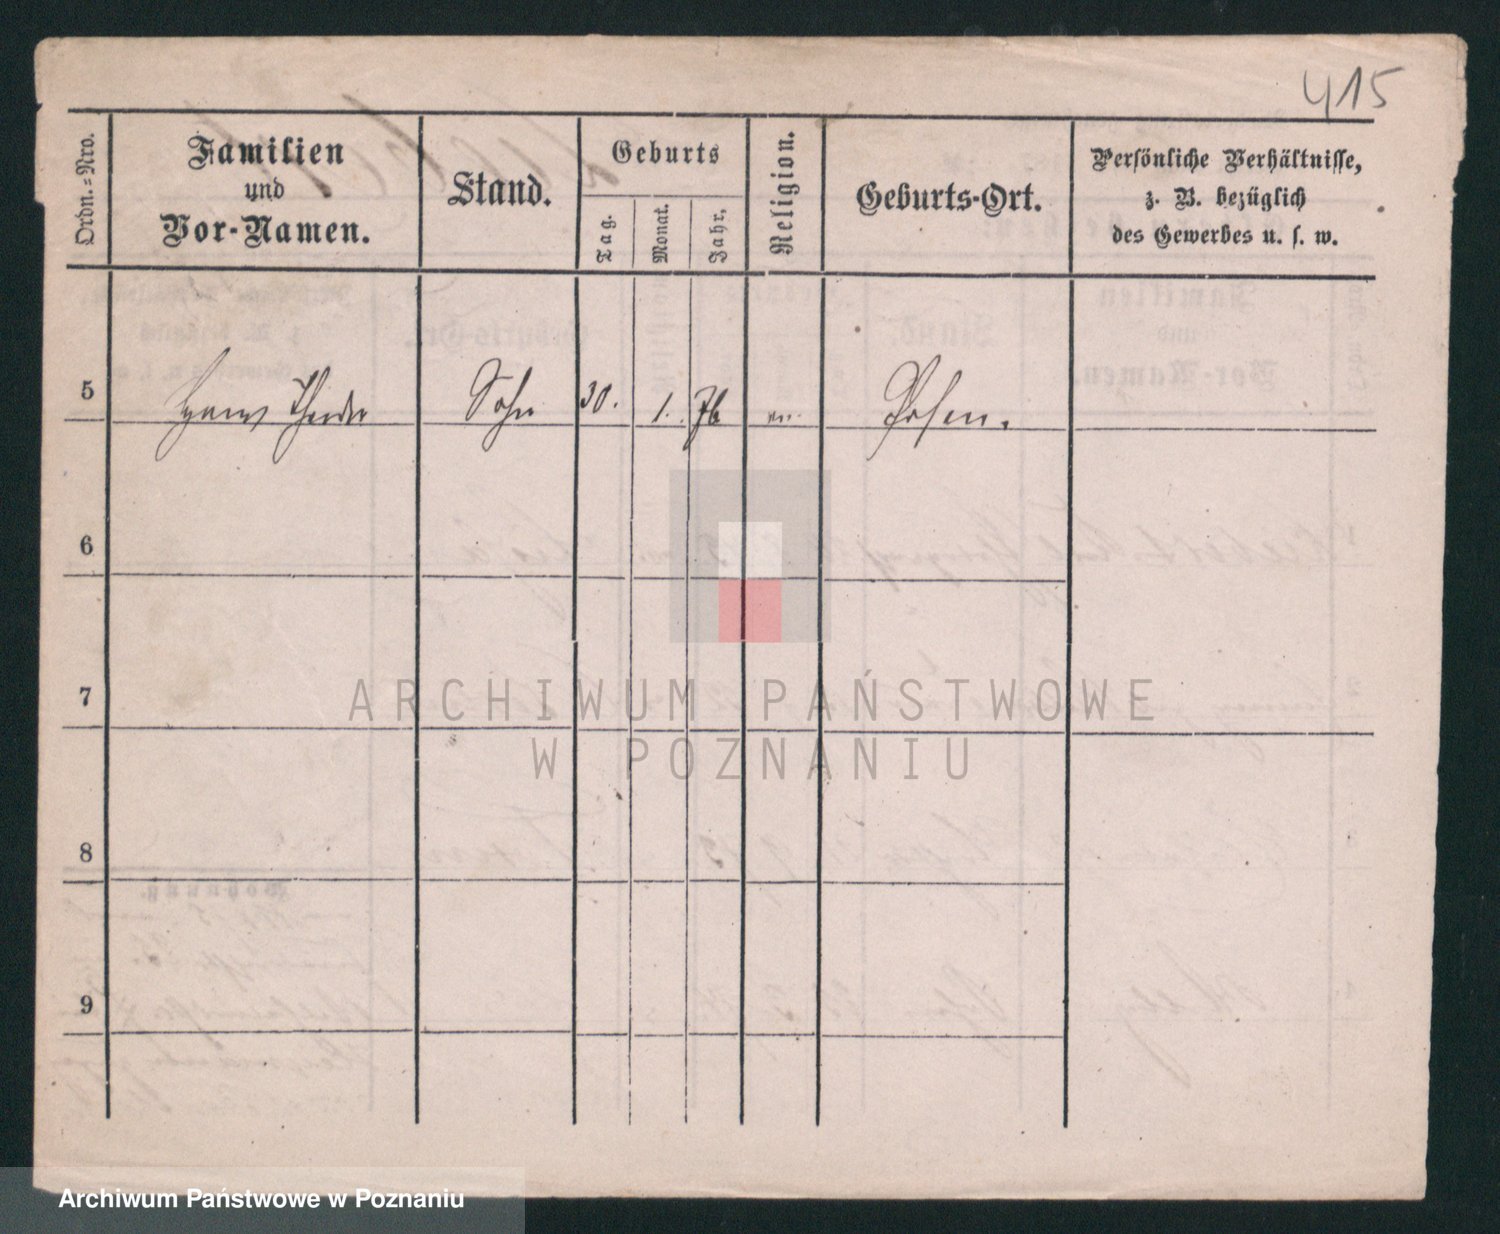 415
Ordn.=Nro.
Familien
und
Vor-Namen.
Stand.
Geburts
Tag.
Monat.
Jahr.
Religion.
Geburts-Ort.
Persönliche Verhältnisse,
z. B. bezüglich
des Gewerbes u. s. w.
5 Hans Theodor Sohn 30. 1. 76 ev. Posen.
6
7
ARCHIWUM PAŃSTWOWE
W POZNANIU
8
9
Archiwum Państwowe w Poznaniu